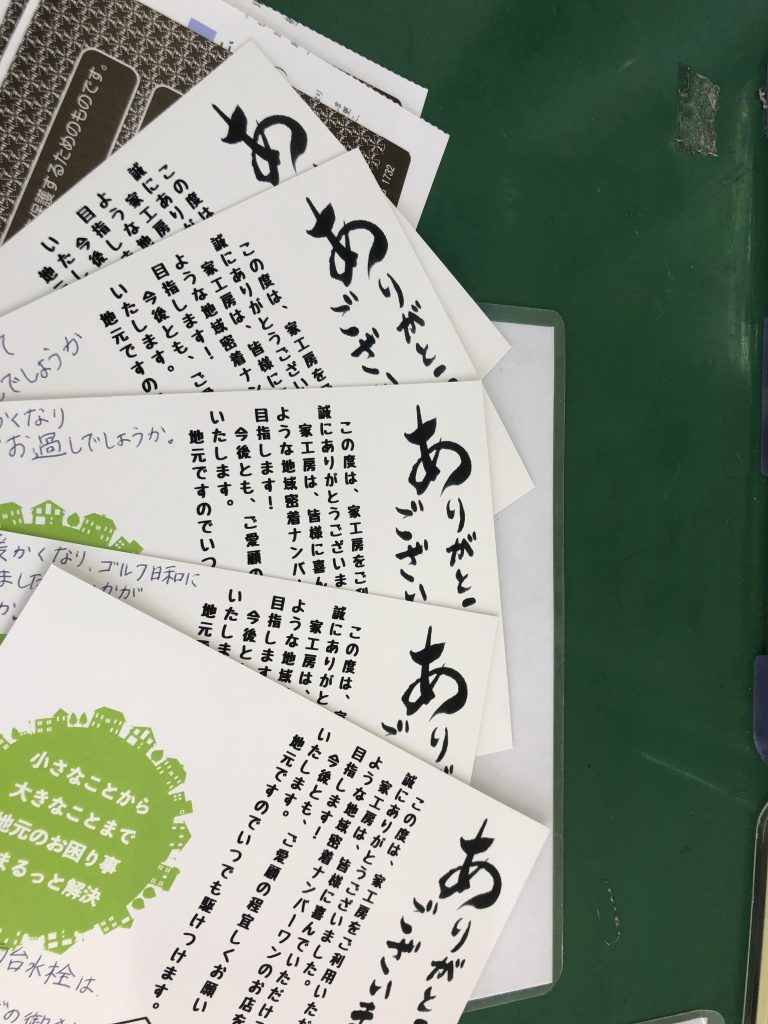 保護するためのものです。
1732
あ
この度は
誠にあり
家工房
ような地
目指し
今後
いた
地元
ありがと
ございい
この度は、家工房を
誠にありがとうござい
家工房は、皆様に
ような地域密着ナン
目指します!
今後とも、ご
いたします。
地元ですの
て
でしょうか
ありがと
ございい
この度は、家工房をご利
誠にありがとうございま
家工房は、皆様に喜ん
ような地域密着ナンバー
目指します!
今後とも、ご愛顧の
いたします。
地元ですのでいつ
かくなり
お過しでしょうか。
ありが
ご
この度は、
誠にありがと
家工房は、
ような地域
目指します
今後と
いたしま
地元で
暖かくなり、ゴルフ日和に
ました
か。
ありがと
ございま
この度は、家工房をご利用いただ
誠にありがとうございました。
家工房は、皆様に喜んでいただけ
ような地域密着ナンバーワンのお店を
目指します!
今後とも、ご愛顧の程宜しくお願い
いたします。
地元ですのでいつでも駆けつけます。
小さなことから
大きなことまで
地元のお困り事
まるっと解決
水栓は、
の御